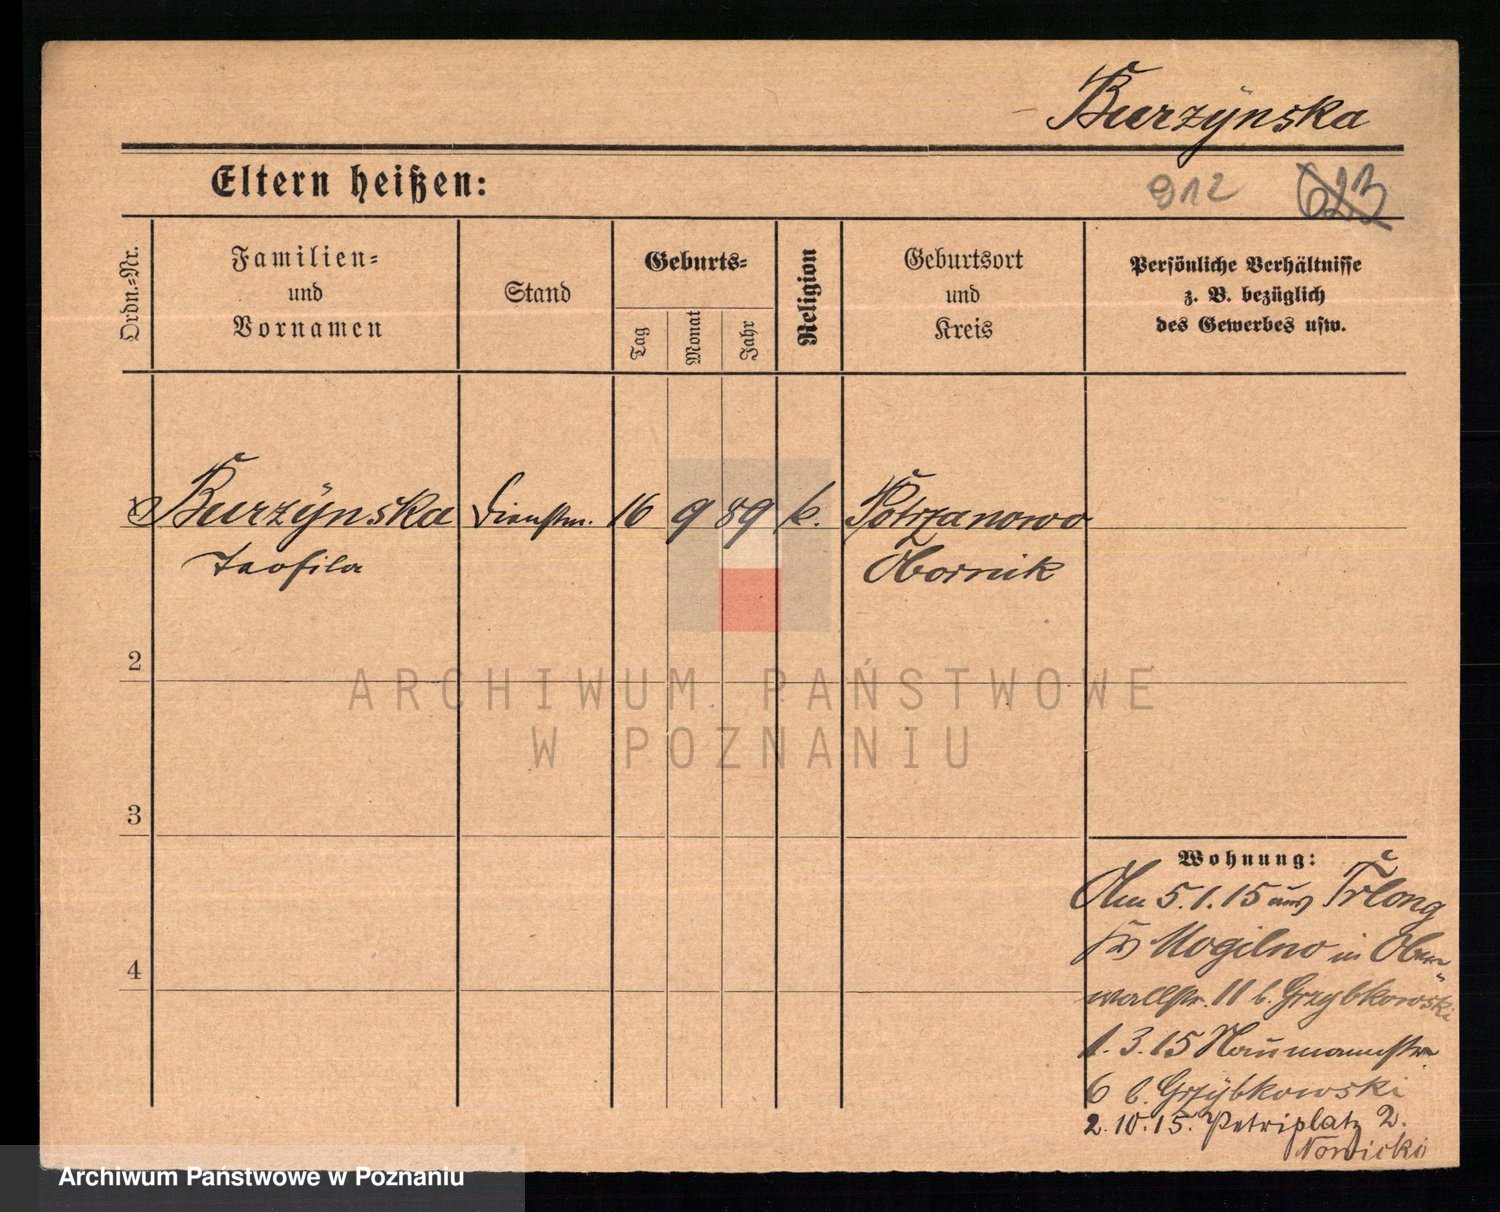 Burzÿnska
Eltern heißen:
912 623
Ordn.-Nr.
Familien-
und
Vornamen
Stand
Geburts-
Tag
Monat
Jahr
Religion
Geburtsort
und
Kreis
Persönliche Verhältnisse
z. B. bezüglich
des Gewerbes usw.
1 Burzÿnska Dienstm. 16 9 89 k. Potrzanowo
Teofila Obornik
2
3
4
ARCHIWUM PAŃSTWOWE
W POZNANIU
Wohnung:
Am 5.1.15 aus Trlong
Kr Mogilno in Ober
wallstr. 11 b. Grzybkowski
1.3.15 Naumannstr
6 b. Grzÿbkowski
2.10.15. Petriplatz 2.
Nowicki
Archiwum Państwowe w Poznaniu